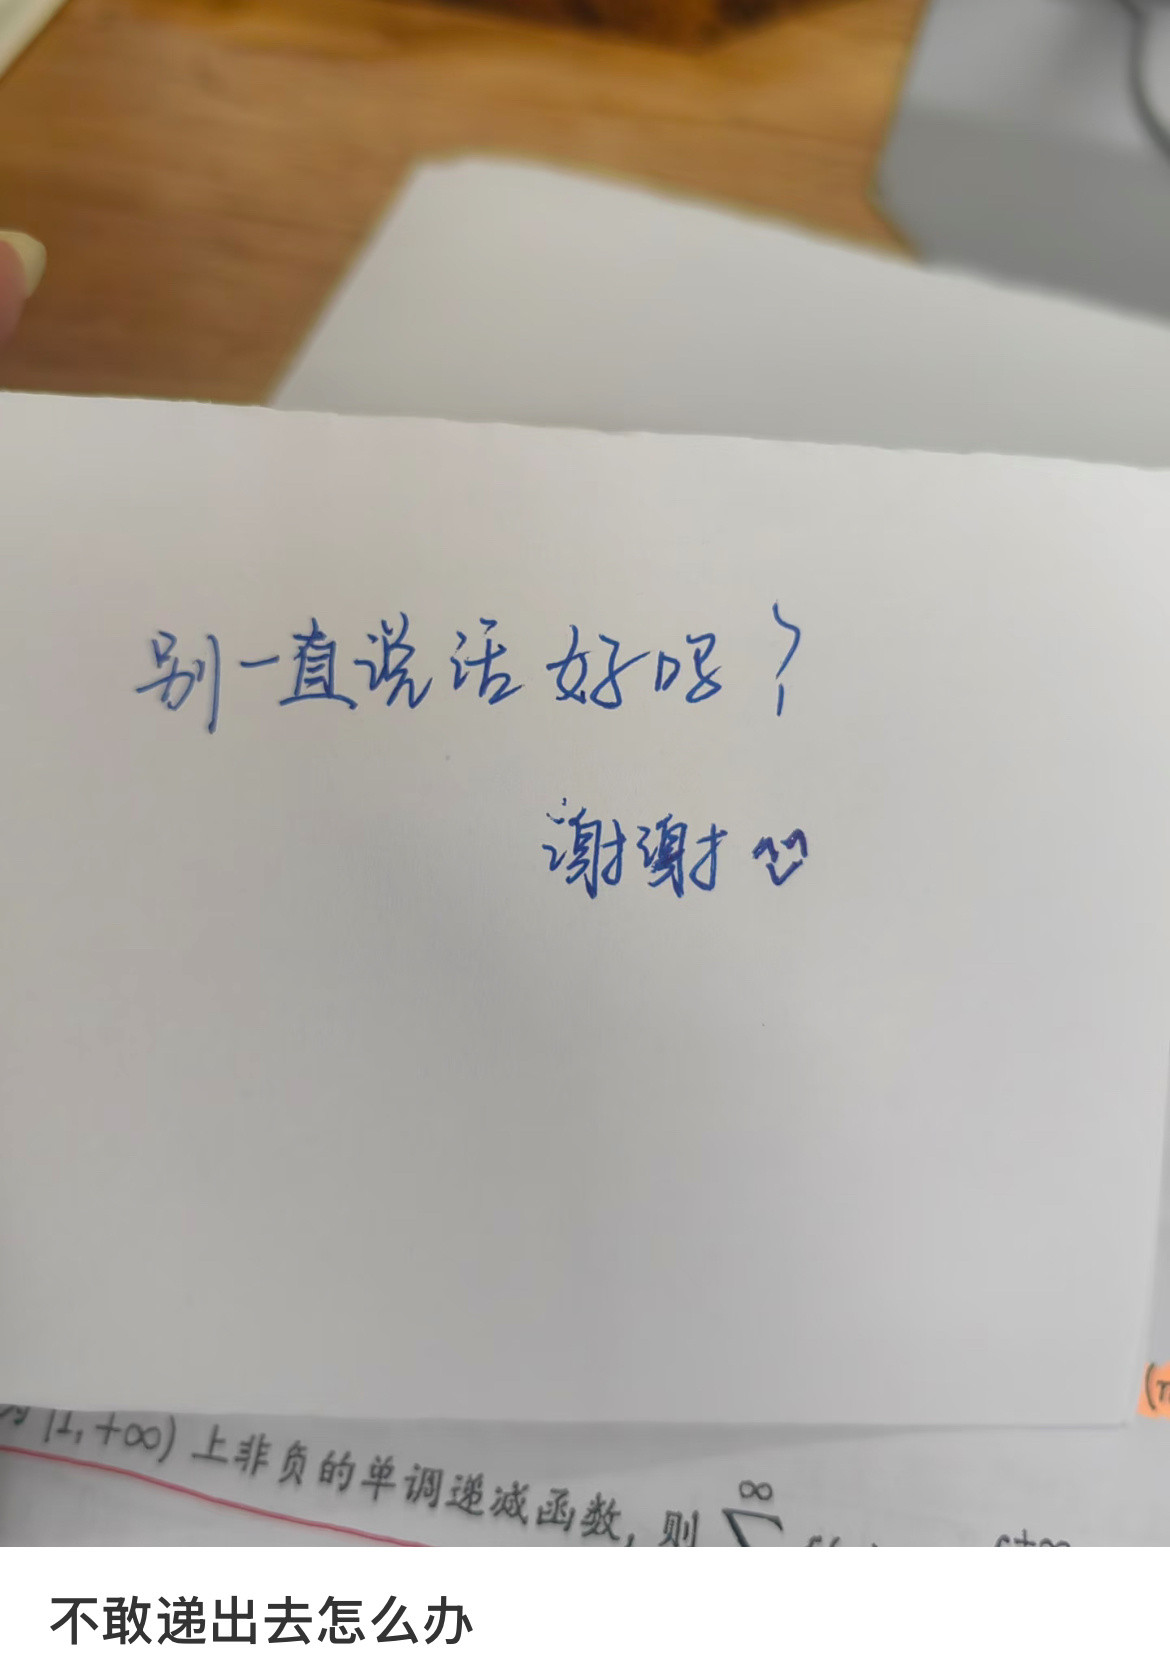 别一直说话好吗？
谢谢
[1,+∞) 上非负的单调递减函数, 则 ∞ ∑
不敢递出去怎么办